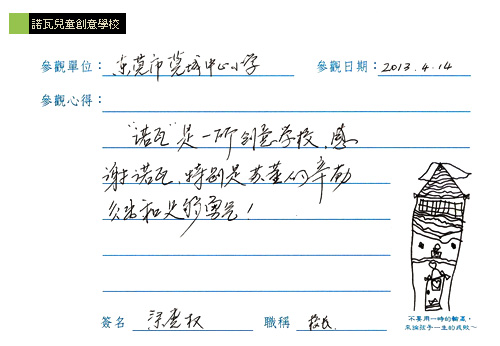 諾瓦兒童創意學校
參觀單位：东莞市莞城中心小学 參觀日期：2013.4.14
參觀心得：
"诺瓦"是一所创意学校，感
谢诺瓦，特别是苏董的辛勤
付出和足够勇气！
簽名 職稱 校长
不要用一時的輸贏，
來論孩子一生的成敗～